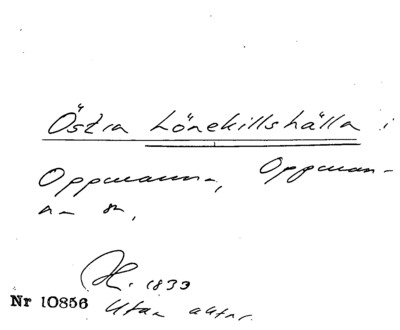 Östra Lönekillshälla i
Oppmanna, Oppman-
na sn,
1833
Nr 10856 Utan autor.